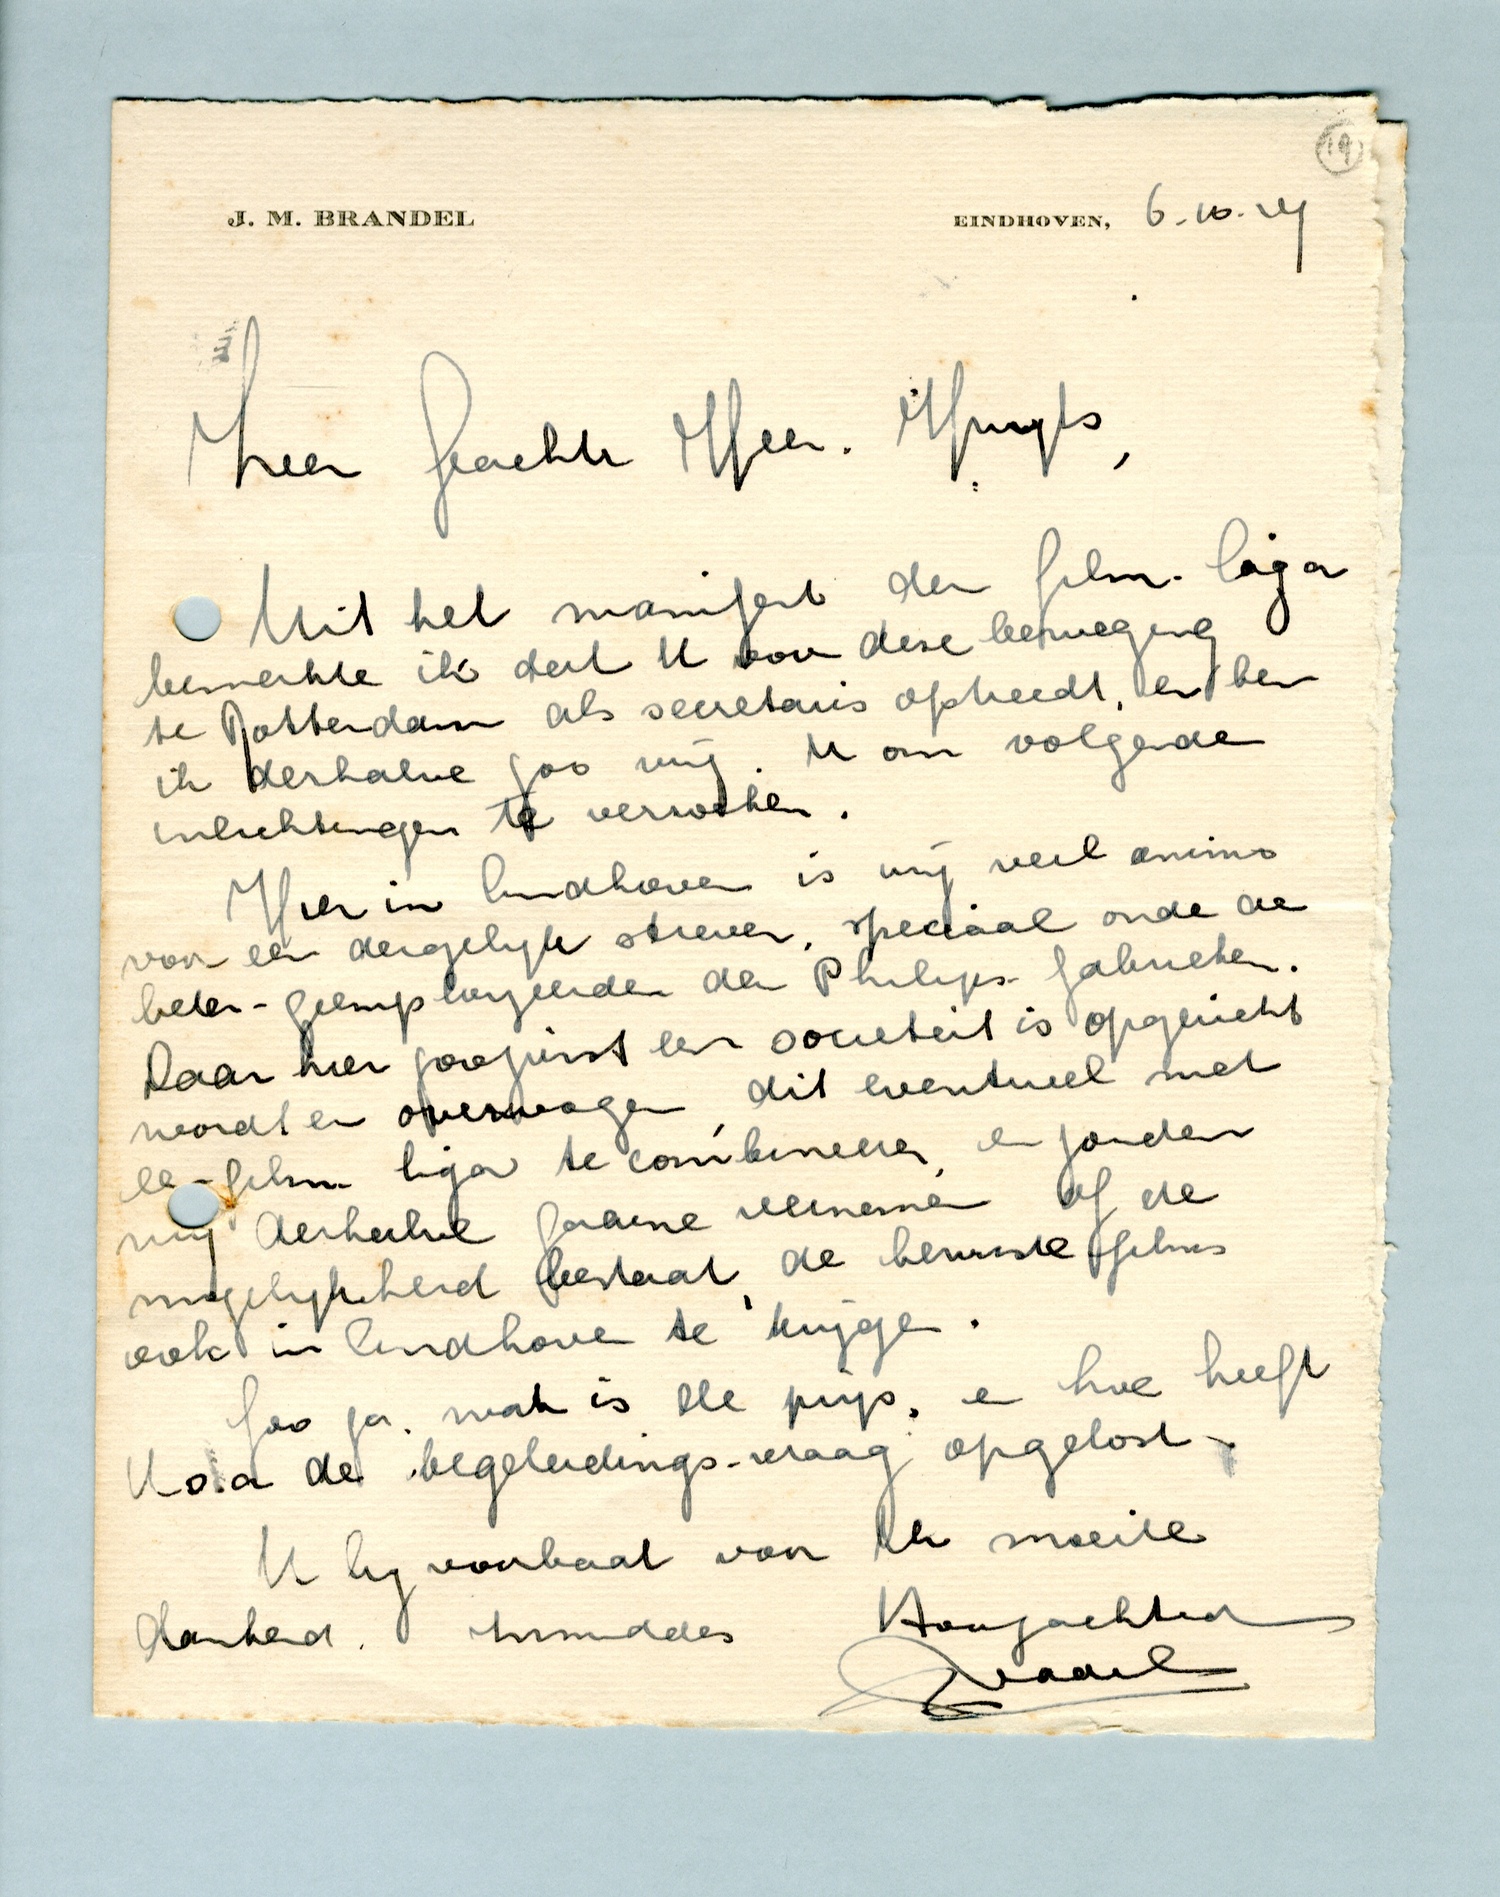 19
J. M. BRANDEL
EINDHOVEN, 6-10-27
Zeer Geachte Heer. Huyts,
Uit het manifest der film-liga
bemerkte ik dat U voor deze beweging
te Rotterdam als secretaris optreedt, en ben
ik derhalve zoo vrij. U om volgende
inlichtingen te verzoeken.
Hier in Eindhoven is vrij veel animo
voor een dergelijk streven, speciaal onder de
beter-geemployeerden der Philips-fabrieken.
Daar hier zoojuist een societeit is opgericht
wordt er overwogen dit eventueel met
een film liga te combineeren, en zouden
wij derhalve gaarne vernemen of de
mogelijkheid bestaat, de bewuste films
ook in Eindhoven te krijgen.
Zoo ja, wat is de prijs, en hoe heeft
U o.a de begeleidings-vraag opgelost.
U bij voorbaat voor Uw moeite
dankend. inmiddels Hoogachtend
Brandel